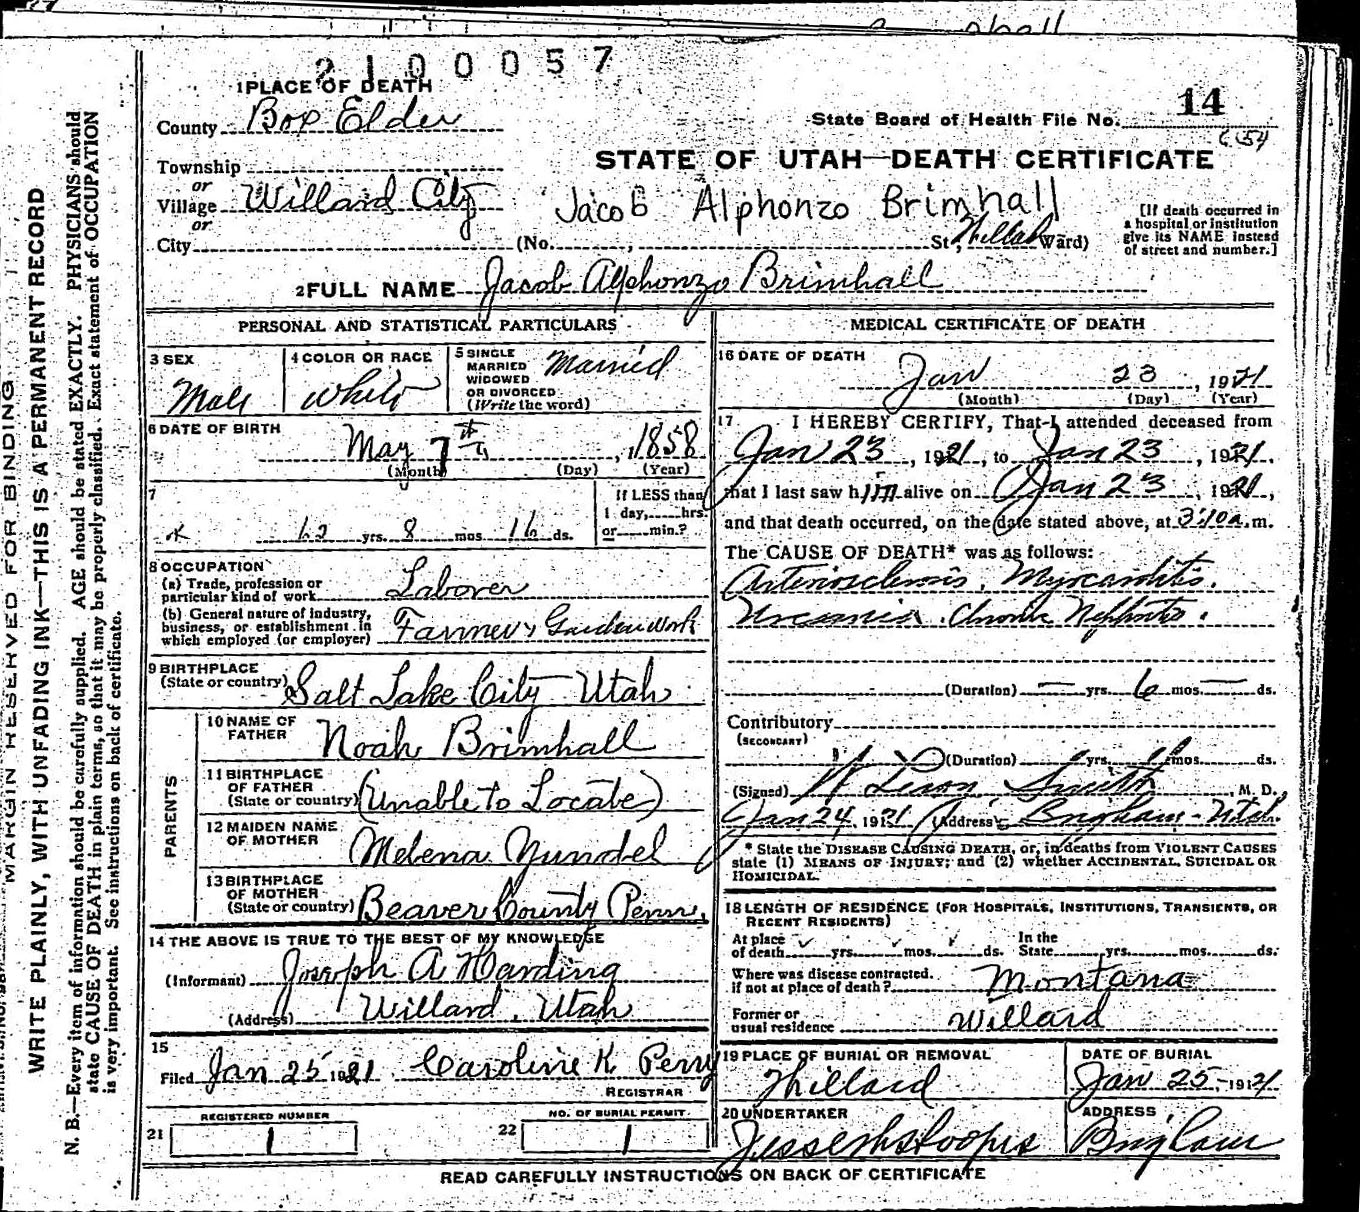 2100057
1 PLACE OF DEATH
County Box Elder
14
State Board of Health File No.
STATE OF UTAH—DEATH CERTIFICATE
Township
or
Village Willard City
Jacob Alphonzo Brimhall
or
City (No. , St. Willard Ward)
[If death occurred in
a hospital or institution
give its NAME instead
of street and number.]
2 FULL NAME Jacob Alphonzo Brimhall
PERSONAL AND STATISTICAL PARTICULARS
3 SEX
Male
4 COLOR OR RACE
White
5 SINGLE
MARRIED
WIDOWED
OR DIVORCED
(Write the word)
Married
6 DATE OF BIRTH
May 7th, 1858
(Month) (Day) (Year)
7
62 yrs. 8 mos. 16 ds.
If LESS than
1 day, hrs.
or min.?
8 OCCUPATION
(a) Trade, profession or
particular kind of work Laborer
(b) General nature of industry,
business, or establishment in
which employed (or employer) Farmer & Garden work
9 BIRTHPLACE
(State or country) Salt Lake City Utah
PARENTS
10 NAME OF
FATHER Noah Brimhall
11 BIRTHPLACE
OF FATHER
(State or country) (Unable to Locate)
12 MAIDEN NAME
OF MOTHER Melena
13 BIRTHPLACE
OF MOTHER
(State or country) Beaver County Penn.
14 THE ABOVE IS TRUE TO THE BEST OF MY KNOWLEDGE
(Informant) Joseph A Harding
(Address) Willard, Utah
15
Filed Jan 25 1921 Caroline K. Perry
REGISTRAR
REGISTERED NUMBER
21 1
NO. OF BURIAL PERMIT.
22 1
MEDICAL CERTIFICATE OF DEATH
16 DATE OF DEATH
Jan 23, 1921
(Month) (Day) (Year)
17 I HEREBY CERTIFY, That I attended deceased from
Jan 23, 1921, to Jan 23, 1921,
that I last saw him alive on Jan 23, 1921,
and that death occurred, on the date stated above, at 3:10 a.m.
The CAUSE OF DEATH* was as follows:
Arteriosclerosis, Myocarditis.
Uraemia. Chronic Nephritis.
(Duration) — yrs. 6 mos. — ds.
Contributory
(SECONDARY)
(Duration) yrs. mos. ds.
(Signed) Smith, M. D.
Jan 24, 1921 (Address) Brigham - Utah.
* State the DISEASE CAUSING DEATH, or, in deaths from VIOLENT CAUSES
state (1) MEANS OF INJURY; and (2) whether ACCIDENTAL, SUICIDAL OR
HOMICIDAL.
18 LENGTH OF RESIDENCE (FOR HOSPITALS, INSTITUTIONS, TRANSIENTS, OR
RECENT RESIDENTS)
At place
of death yrs. mos. ds.
In the
State yrs. mos. ds.
Where was disease contracted.
if not at place of death? Montana
Former or
usual residence Willard
19 PLACE OF BURIAL OR REMOVAL
Willard
DATE OF BURIAL
Jan 25, 1921
20 UNDERTAKER
ADDRESS
Brigham
READ CAREFULLY INSTRUCTIONS ON BACK OF CERTIFICATE
MARGIN RESERVED FOR BINDING
WRITE PLAINLY, WITH UNFADING INK—THIS IS A PERMANENT RECORD
N. B.—Every item of information should be carefully supplied. AGE should be stated EXACTLY. PHYSICIANS should
state CAUSE OF DEATH in plain terms, so that it may be properly classified. Exact statement of OCCUPATION
is very important. See instructions on back of certificate.